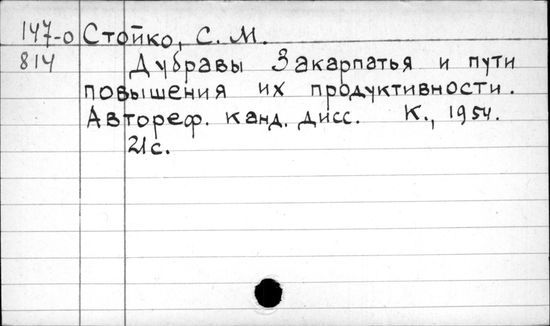 147-о Стойко, С. М.
814 Дубравы Закарпатья и пути
повышения их продуктивности.
Автореф. канд. дисс. К., 1954.
21с.